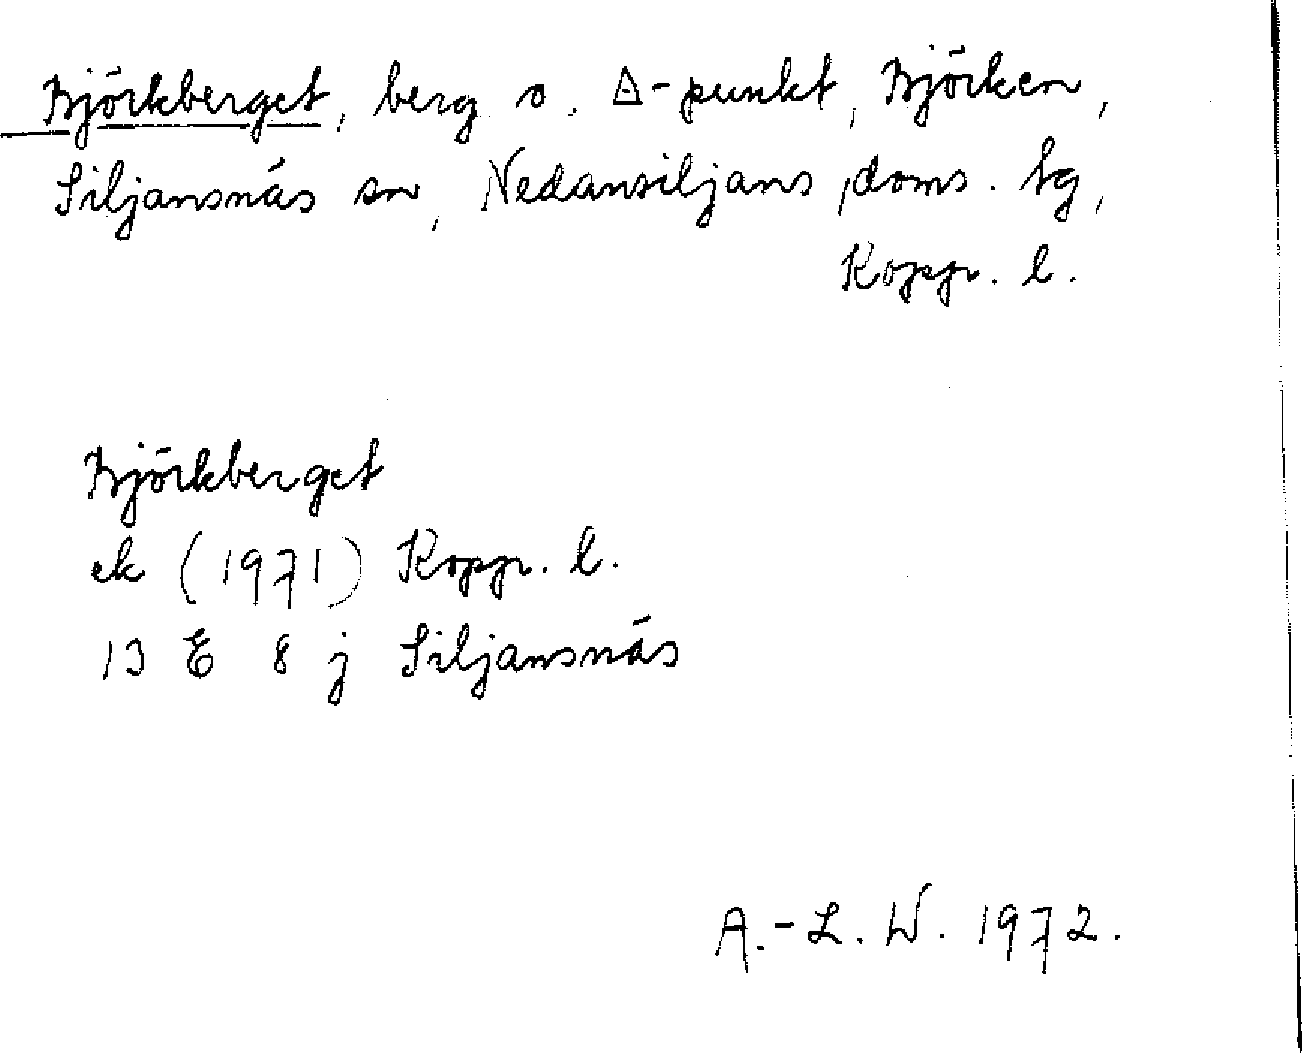 Björkberget, berg o. ∆-punkt, Björken,
Siljansnäs sn, Nedansiljans doms. tg,
Koppr. l.
Björkberget
ek (1971) Koppr. l.
13 E 8 j Siljansnäs
A.-L. W. 1972.